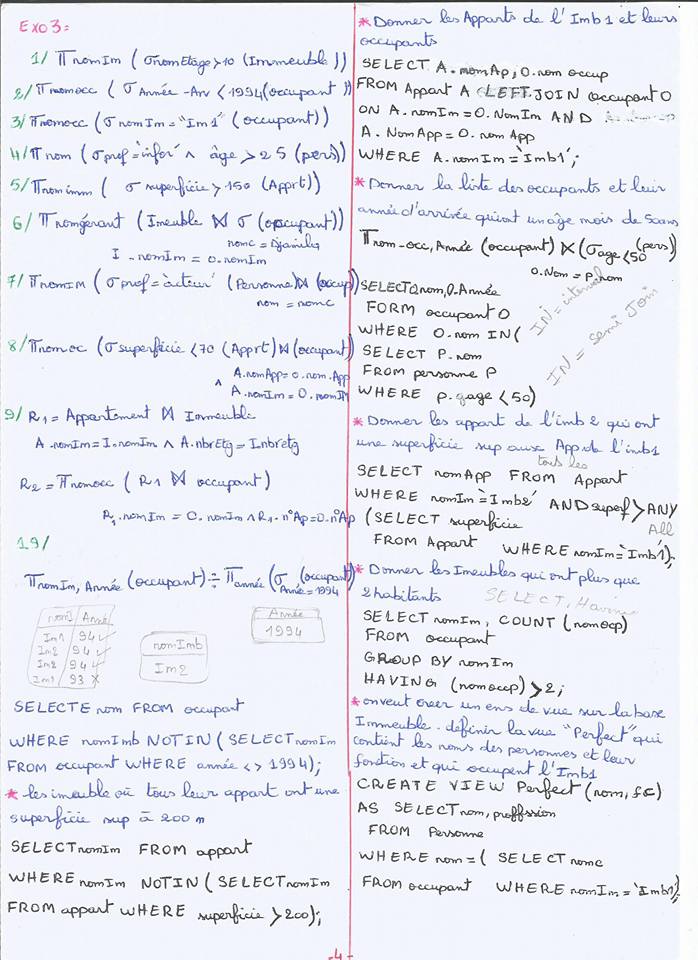 Exo 3:
1/ π nomIm ( σ nomEtage > 10 (Immeuble))
2/ π nomocc ( σ Année-Arv < 1994 (occupant))
3/ π nomocc ( σ nomIm = "Im1" (occupant))
4/ π nom ( σ prof = 'infor' ∧ âge > 25 (pers))
5/ π nomimm ( σ superficie > 150 (Apprt))
6/ π nomgérant (Imeuble ⋈ σ (occupant))
nomc = Djamila
I.nomIm = o.nomIm
7/ π nomIM ( σ prof = 'acteur' (Personne) ⋈ (occup))
nom = nomc
8/ π nomoc ( σ superficie < 70 (Apprt) ⋈ (occupant))
A.nomApp = o.nom.App
∧ A.nomIm = O.nomIm
9/ R1 = Appartement ⋈ Immeuble
A.nomIm = I.nomIm ∧ A.nbrEtg = I.nbretg
R2 = π nomocc ( R1 ⋈ occupant)
R1.nomIm = O.nomIm ∧ R1.n°Ap = O.n°Ap
19/
π nomIm, Année (occupant) ÷ π année ( σ Année = 1994 (occupant))
nomI Année
Im1 94 ✓
Im2 94 ✓
Im2 94 ✓
Im1 93 ✗
nomImb
Im2
Année
1994
SELECTE nom FROM occupant
WHERE nomImb NOTIN ( SELECT nomIm
FROM occupant WHERE année <> 1994);
* les imeuble où tous leur appart ont une
superficie sup à 200 m
SELECT nomIm FROM appart
WHERE nomIm NOTIN ( SELECT nomIm
FROM appart WHERE superficie > 200);
* Donner les Apparts de l'Imb1 et leurs
occupants
SELECT A.nomAp, O.nom occup
FROM Appart A LEFT JOIN occupant O
ON A.nomIm = O.NomIm AND
A.NomApp = O.nomApp
WHERE A.nomIm = 'Imb1';
* Donner la liste des occupants et leur
année d'arrivée quiont un âge mois de 50ans
π nom-occ, Année (occupant) ⋉ ( σ age < 50 (pers))
O.Nom = P.nom
SELECT O.nom, O.Année
FORM occupant O
WHERE O.nom IN(
SELECT P.nom
FROM personne P
WHERE p.gage < 50)
IN = interval
IN = semi Join
* Donner les appart de l'imb 2 qui ont
une superficie sup aux App de l'imb1
tous les
SELECT nomApp FROM Appart
WHERE nomIm = 'Imb2' AND superf > ANY
All
(SELECT superficie
FROM Appart WHERE nomIm = 'Imb1');
* Donner les Imeubles qui ont plus que
2 habitants
SELECT, Having
SELECT nomIm, COUNT (nomocp)
FROM occupant
GROUP BY nomIm
HAVING (nomoccp) > 2;
* onveut creer un ens de vue sur la base
Immeuble. définir la vue "Perfect" qui
contient les noms des personnes et leur
fonction et qui occupent l'Imb1
CREATE VIEW Perfect (nom, fc)
AS SELECT nom, proffssion
FROM Personne
WHERE nom = ( SELECT nomc
FROM occupant WHERE nomIm = 'Imb1');
-4-